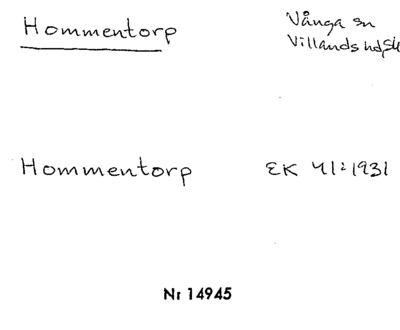 Hommentorp
Vånga sn
Villands hd, Sk
Hommentorp
EK 41:1931
Nr 14945